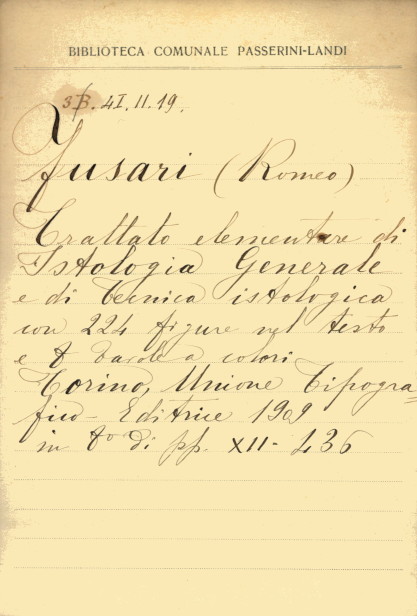 BIBLIOTECA COMUNALE PASSERINI-LANDI
3B. 4I. II. 19.
Fusari (Romeo)
Trattato elementare di
Istologia Generale
e di tecnica istologica
con 224 figure nel testo
e 8 tavole a colori
Torino, Unione Tipogra-
fico-Editrice 1909
in 8º di pp. XII-436